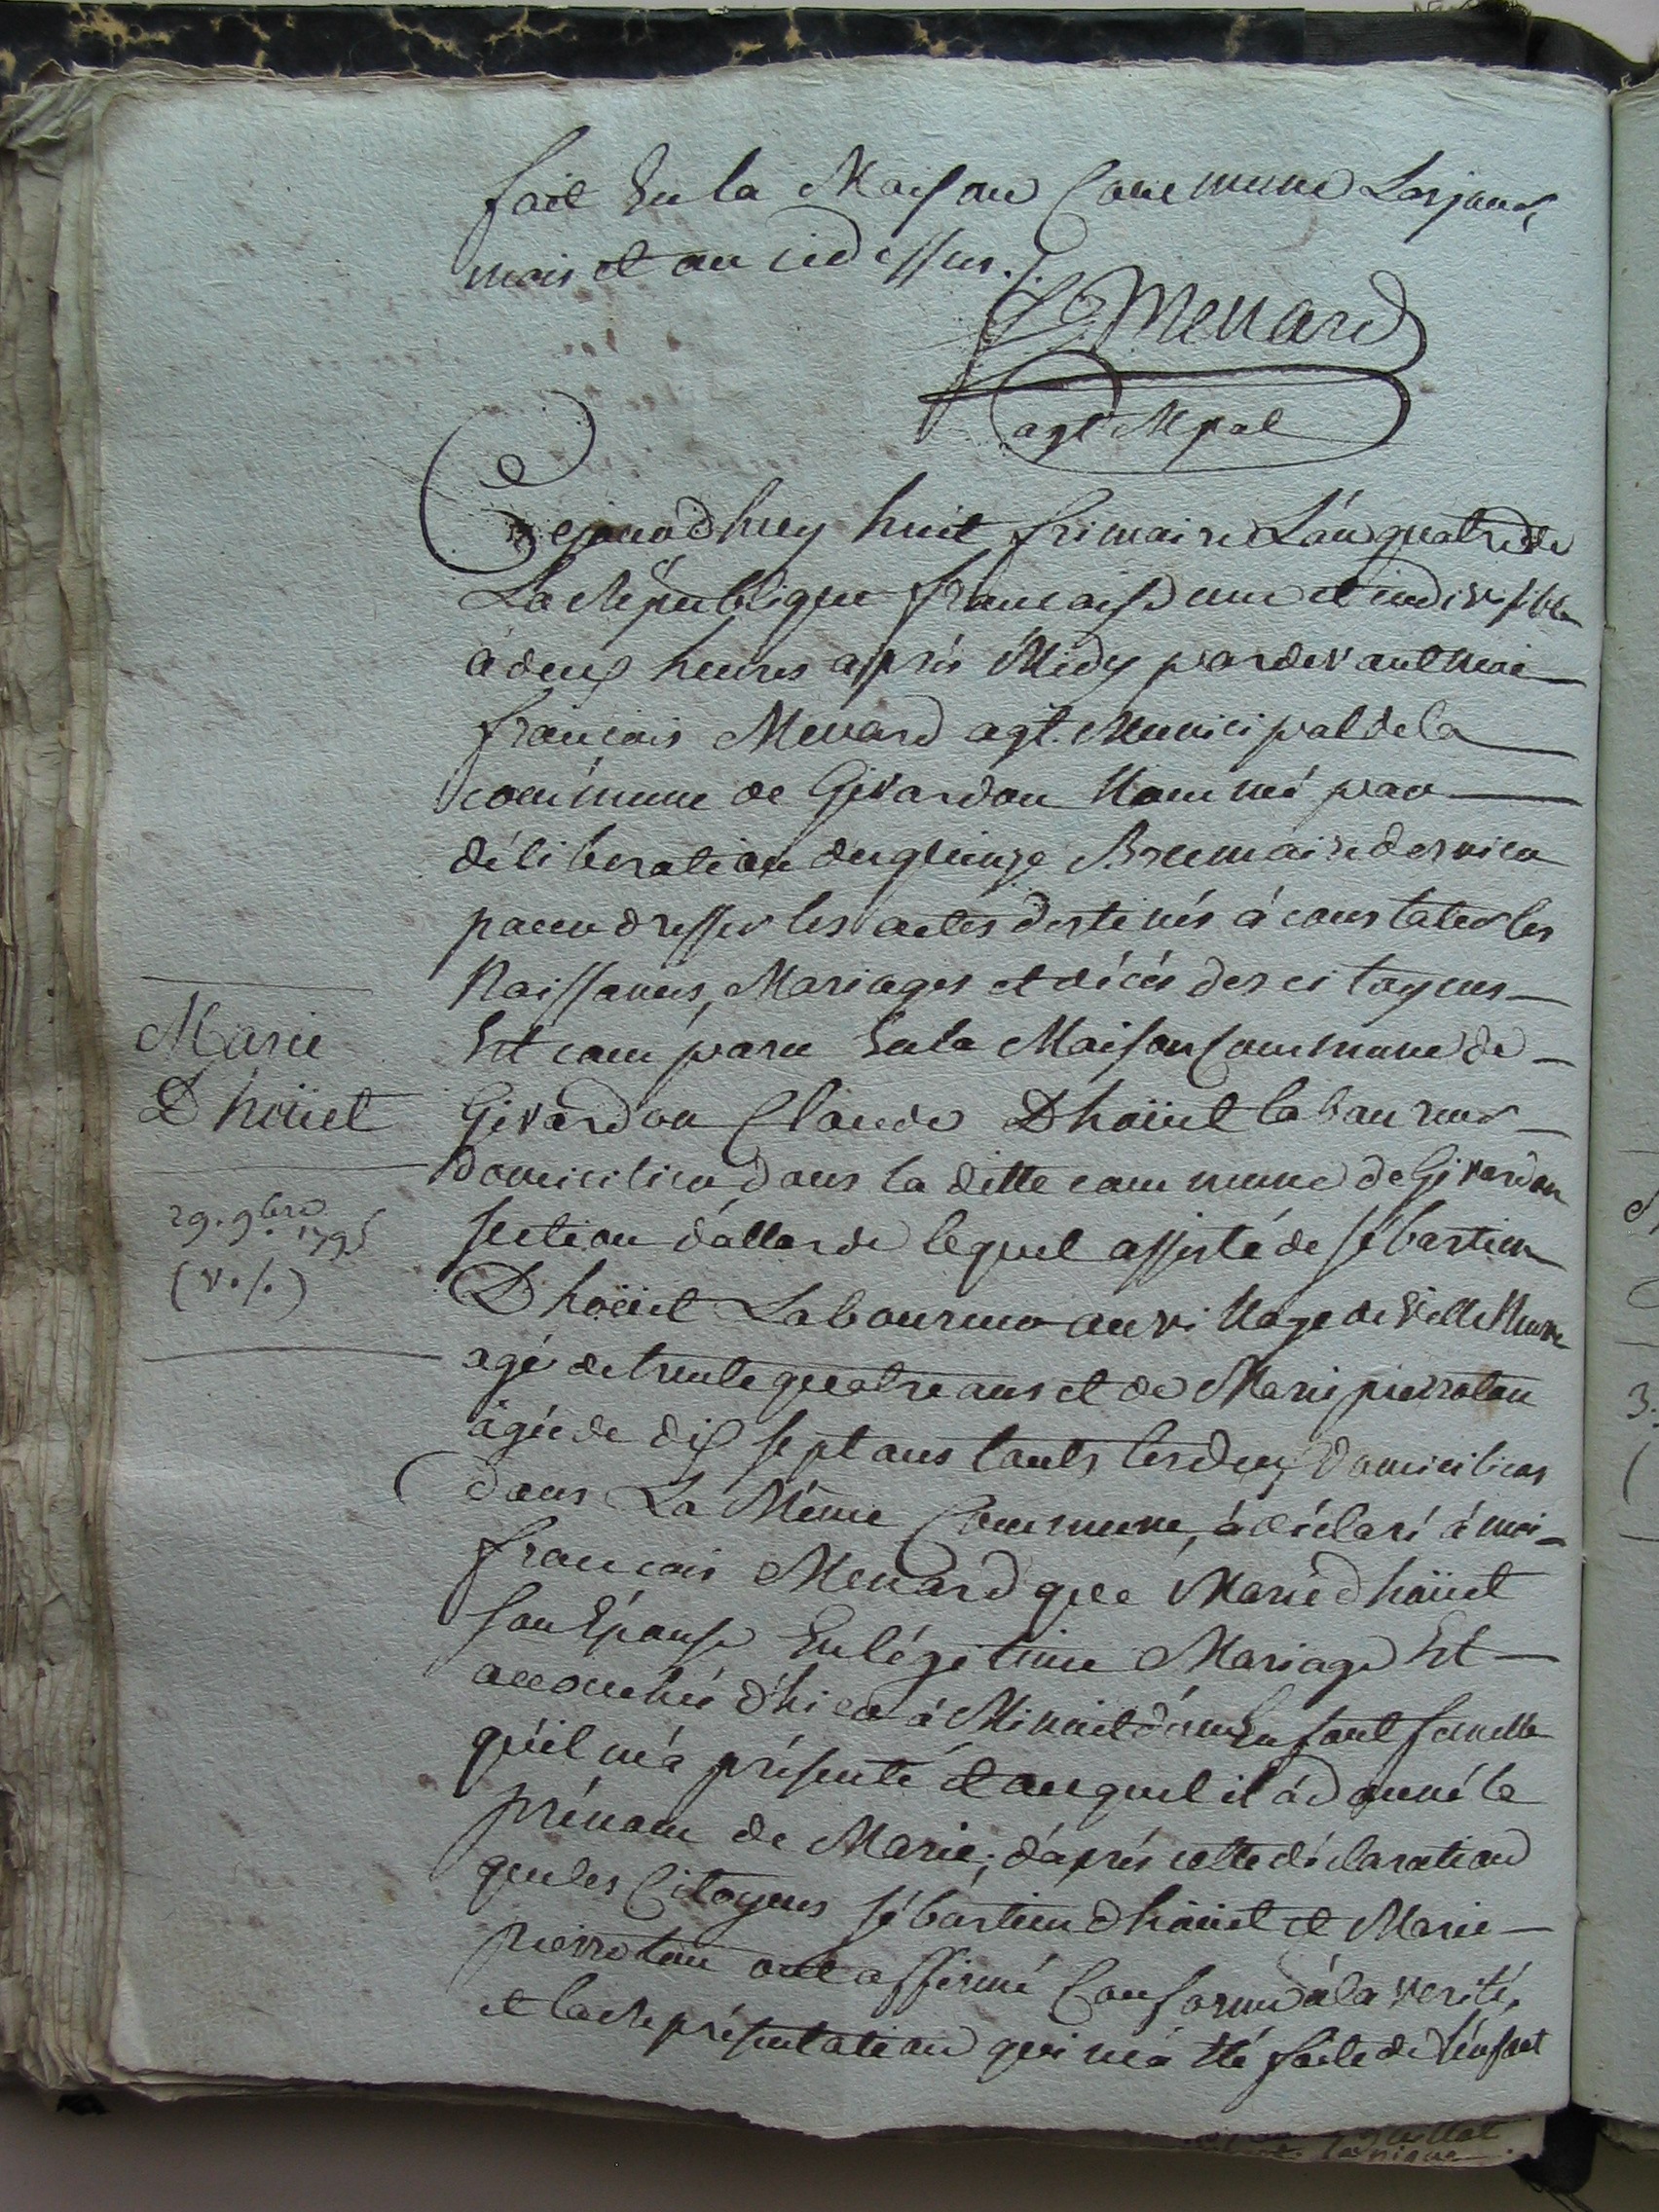 fait En la Maison Commune Les jour,
mois et an cidessus.
Menard
agt Mpal
Cejourdhuy huit frimaire L'an quatre de
La République francaise une et indivisible
à deux heures apprés Midy pardevant Moi
francois Menard agt. Municipal de la
commune de Givardon Nommé par
déliberation du quinze Brumaire dernier
pour dresser les actes destinés à constater les
Naissances, Mariages et décés des citoyens
Est comparu En la Maison Commune de
Givardon Claude Dhoüet laboureur
domicilier dans la ditte commune de Givardon
section d'allarde lequel assisté de sébastien
Dhoüet Laboureur au village de Ville Neuve
agé de trente quatre ans et de Marie pierroton
âgée de dix sept ans touts les deux domicilier
dans La Même Commune, à déclaré à moi
francois Menard que Marie dhoüet
son Epouse En légitime Mariage Est
accouchée d'hier à Minuit d'un Enfant femelle
qu'il m'a présenté et auquel il à donné le
prénom de Marie; d'aprés cette déclaration
que les Citoyens sébastien dhoüet et Marie
Pierroton ont affirmé Conforme à la verité,
et la Représentation qui m'a été faite de l'énfant
Marie
Dhoüet
29. 9bre
1795
(v./.)